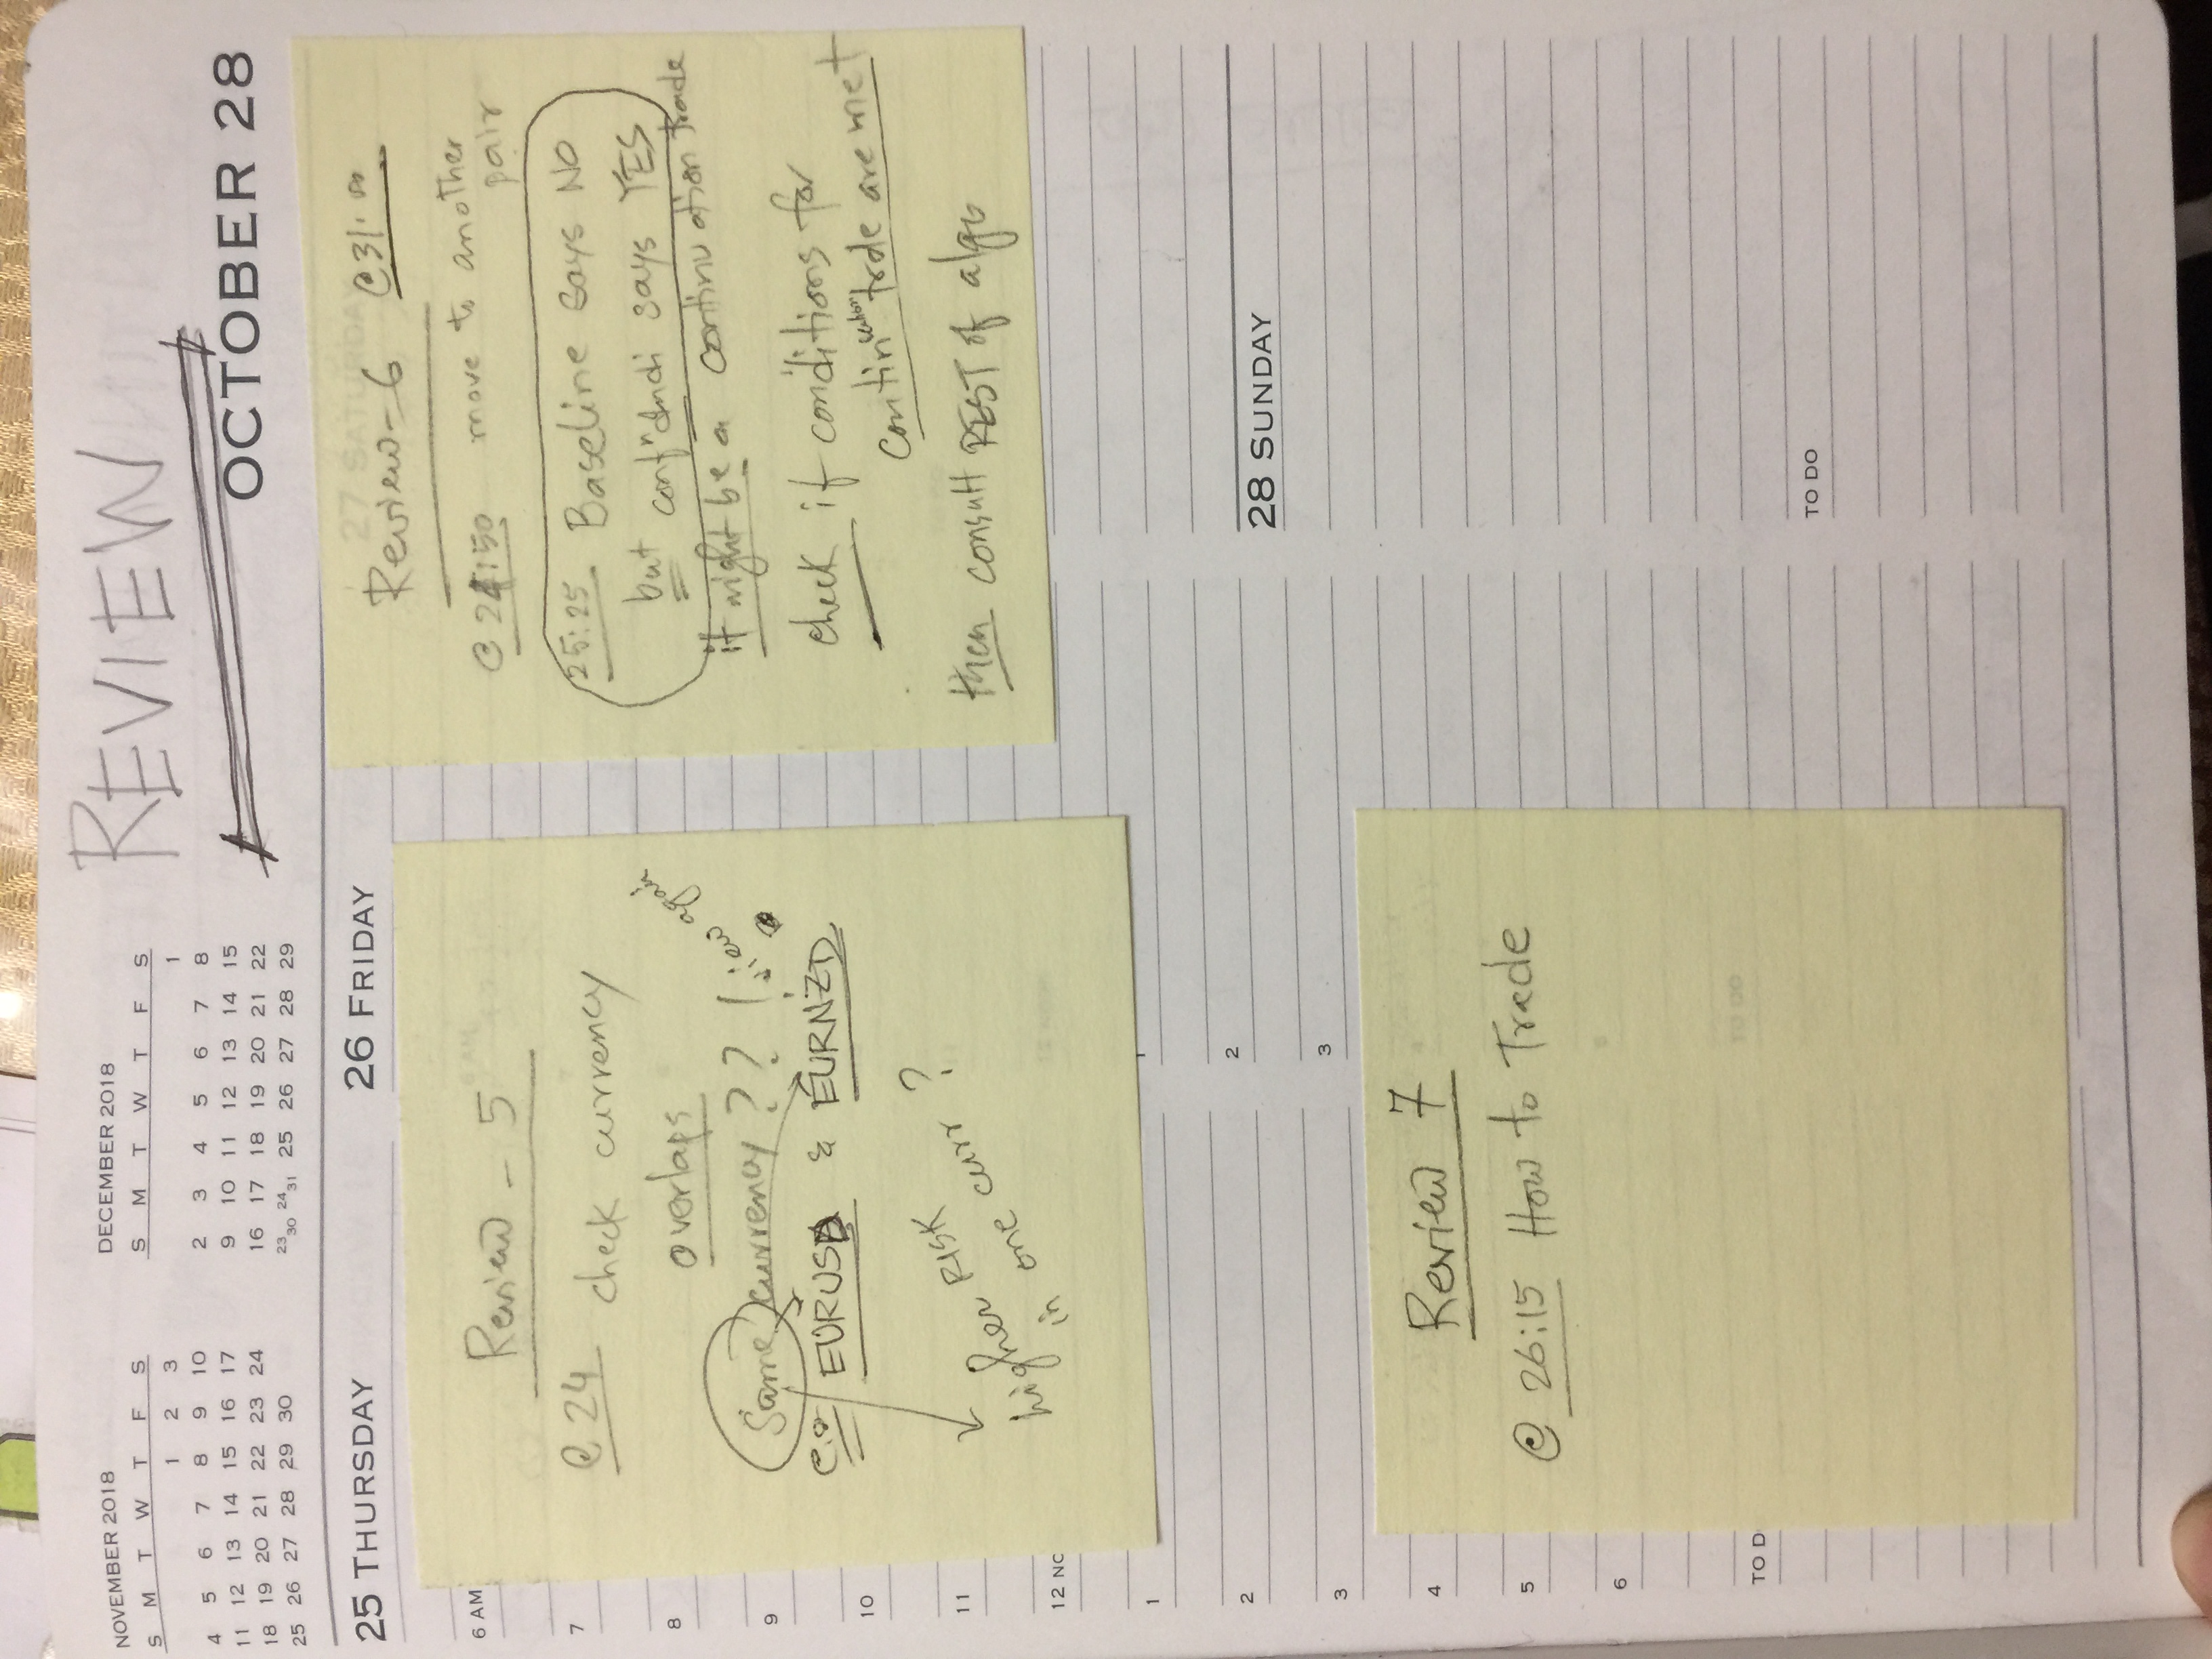 NOVEMBER 2018
S M T W T F S
1 2 3
4 5 6 7 8 9 10
11 12 13 14 15 16 17
18 19 20 21 22 23 24
25 26 27 28 29 30
DECEMBER 2018
S M T W T F S
1
2 3 4 5 6 7 8
9 10 11 12 13 14 15
16 17 18 19 20 21 22
23 30 24 31 25 26 27 28 29
REVIEW
OCTOBER 28
25 THURSDAY
26 FRIDAY
27 SATURDAY
6 AM
7
8
9
10
11
12 NO
1
2
3
4
5
6
TO D
Review - 5
@ 24 check currency
overlaps
Same currency ?? !
view again
e.g EURUSD & EURNZD
higher RISK
in one curr ?
Review - 6 @ 31:
@ 24:50 move to another
pair
25:25 Baseline says NO
but confn indi says YES
it might be a continuation trade
check if conditions for
continuation trde are met
then consult REST of algo
1
2
3
Review 7
@ 26:15 How to Trade
TO DO
28 SUNDAY
TO DO